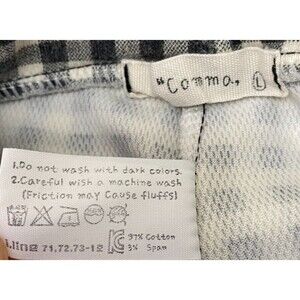 "Comma, L
1.Do not wash with dark colors.
2.Careful wish a machine wash
(Friction may Cause fluffs)
Line 71,72,73-12
97% Cotton
3% Span